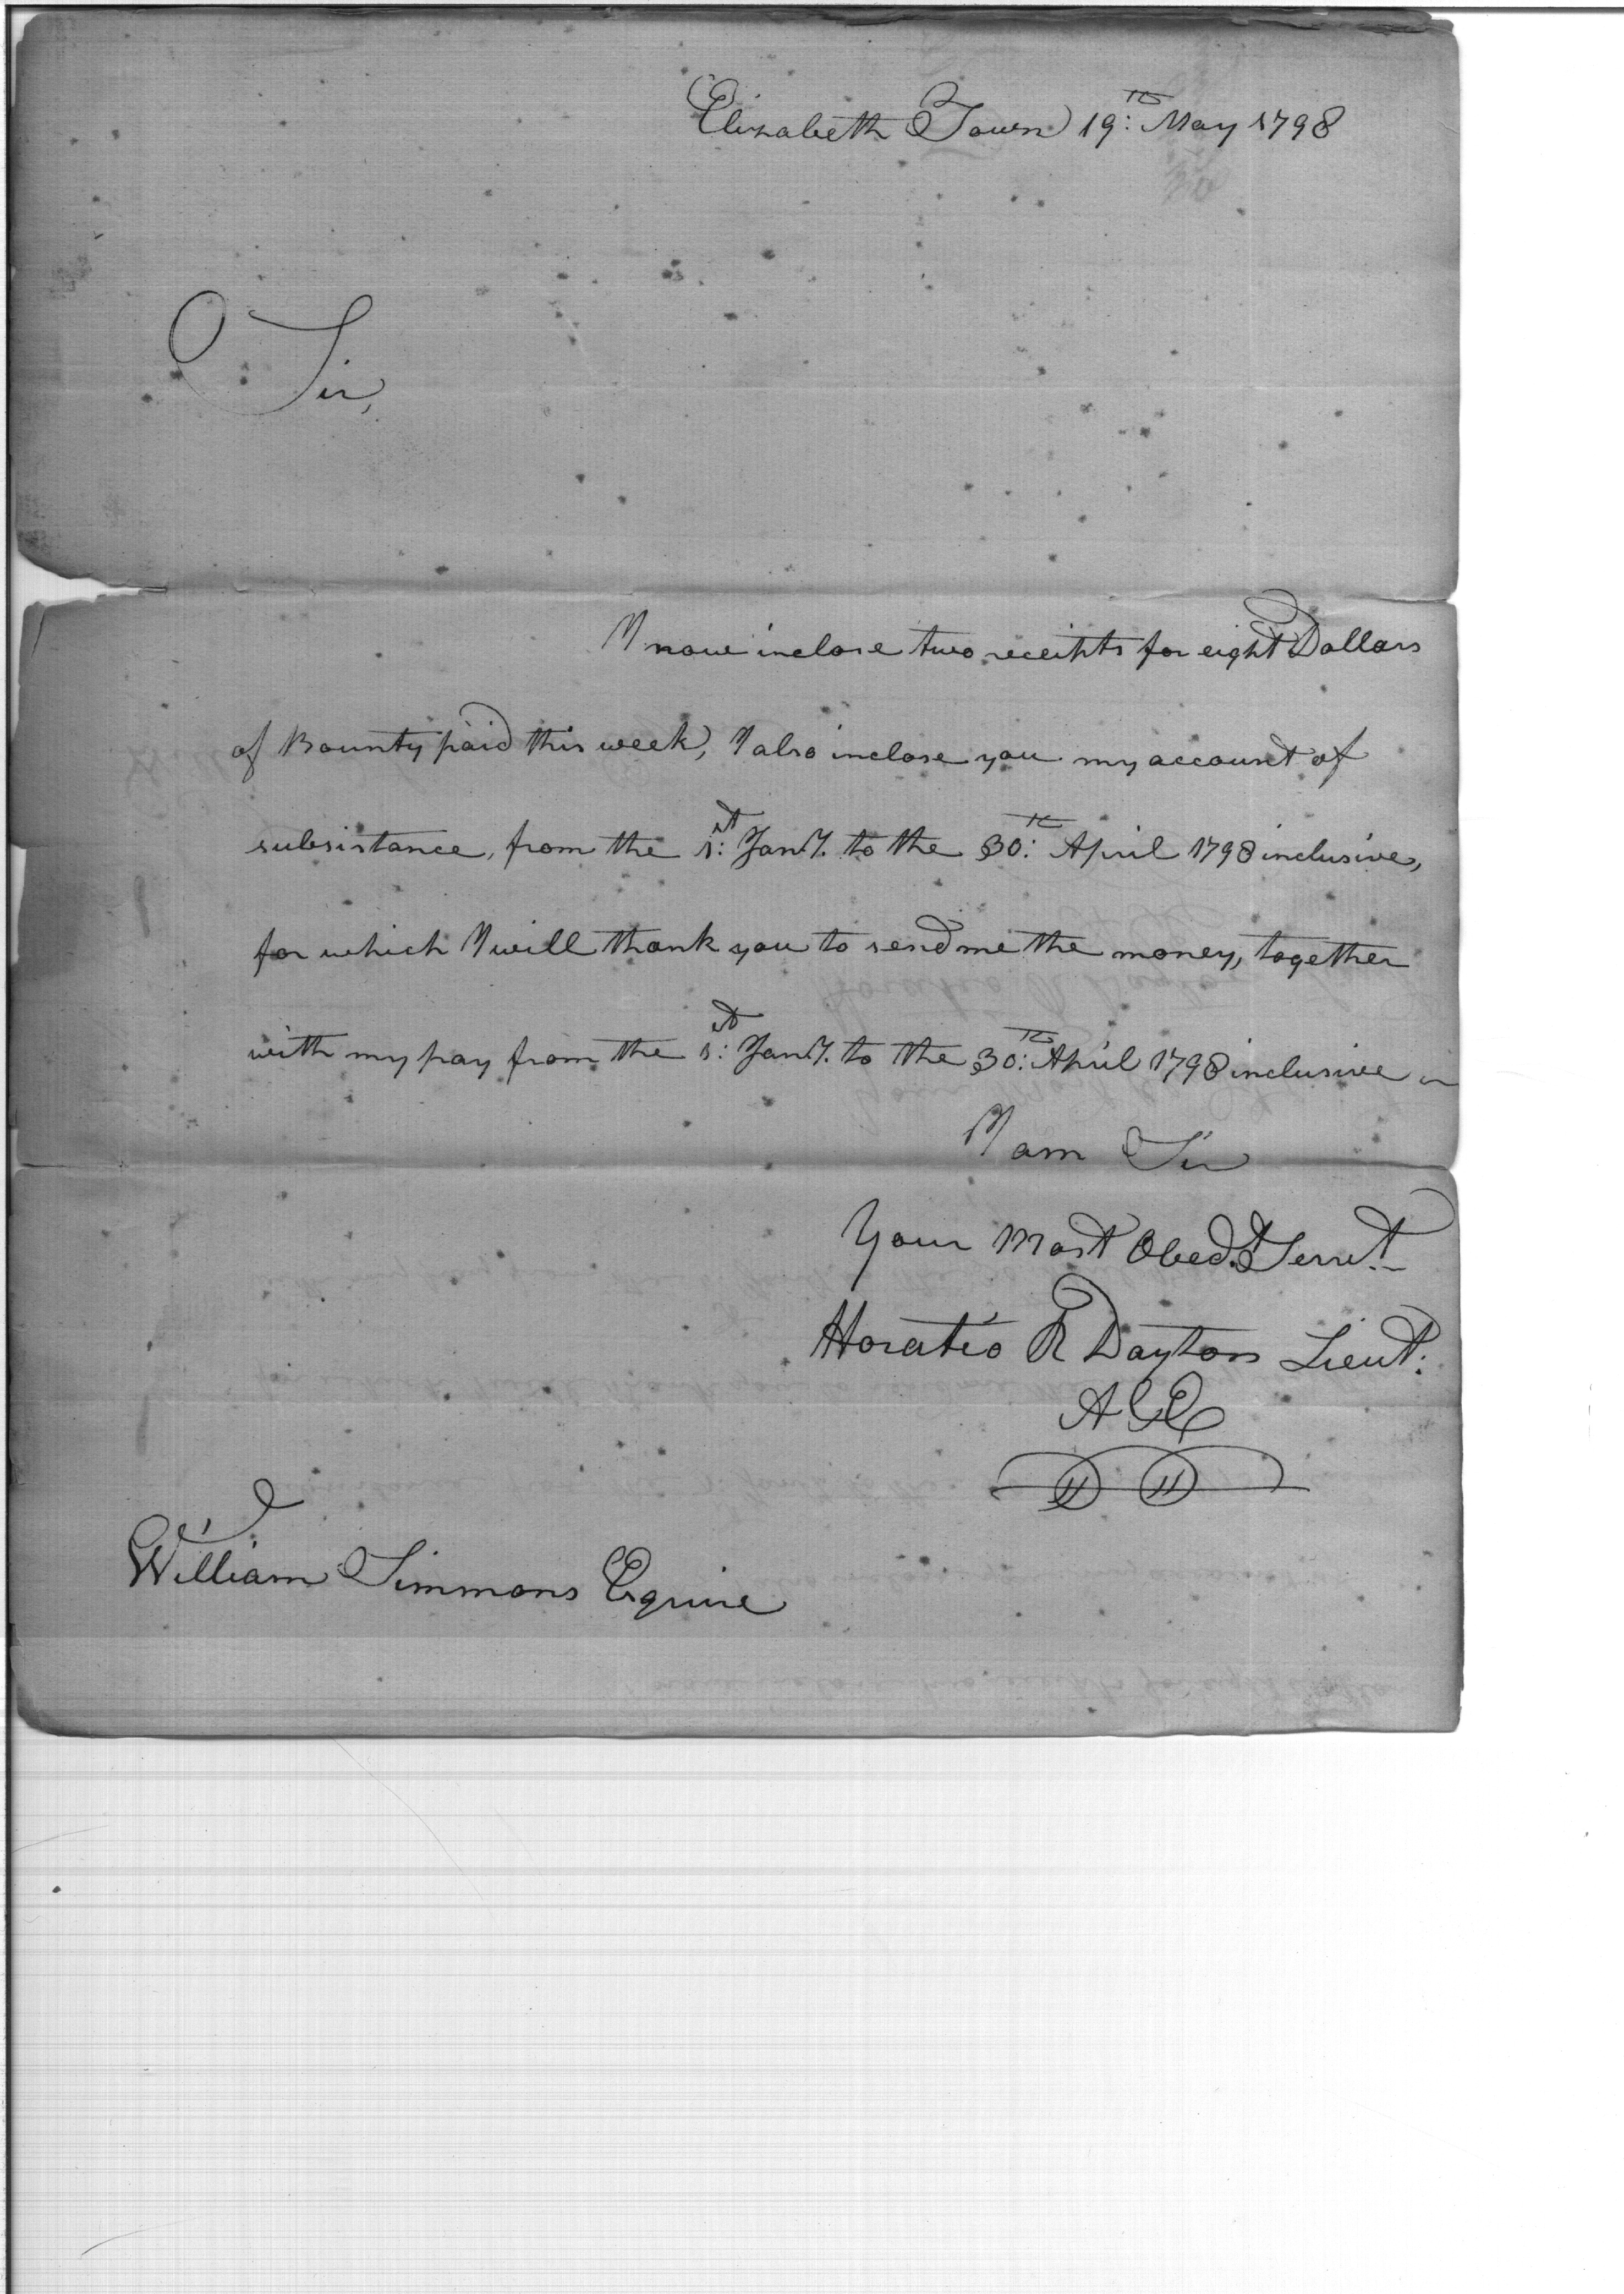 Elizabeth Town 19:th May 1798
Sir,
I now inclose two receipts for eight Dollars
of Bounty paid this week, I also inclose you my account of
subsistance, from the 1:st Jany. to the 30:th April 1798 inclusive,
for which I will thank you to send me the money, together
with my pay from the 1:st Jany. to the 30:th April 1798 inclusive
I am Sir
Your Most Obedt. Servt.
Horatio R Dayton Lieut:
A & E
William Simmons Esquire